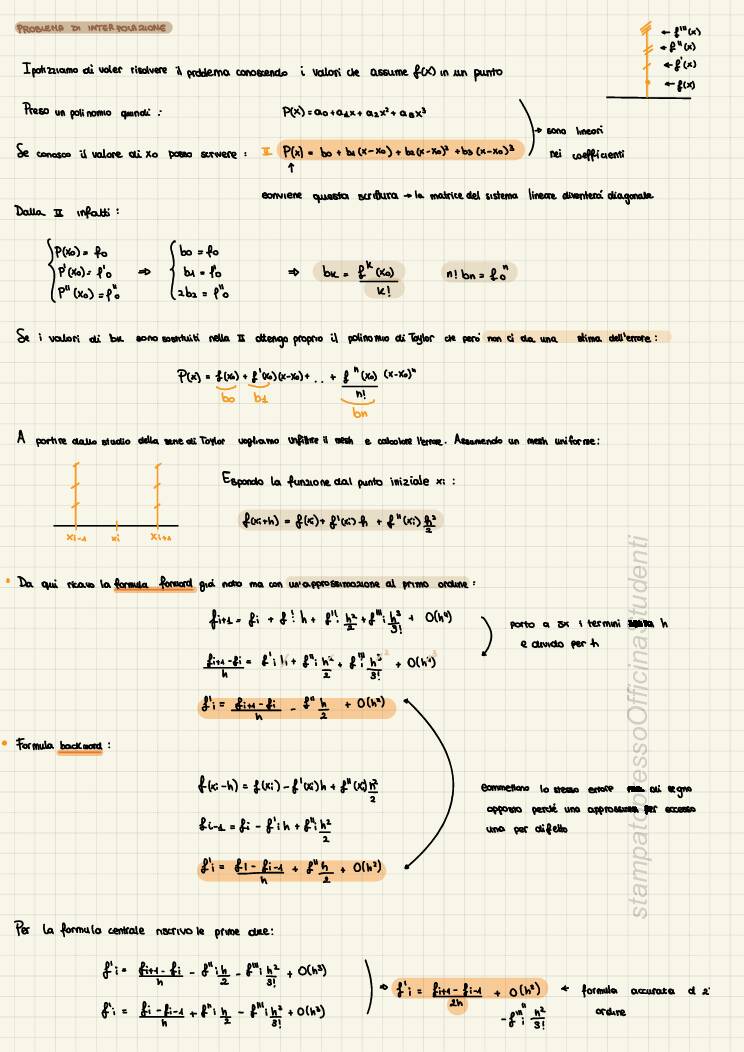 PROBLEMA DI INTERPOLAZIONE
← f'''(x)
← f''(x)
← f'(x)
← f(x)
Ipotizziamo di voler risolvere il problema conoscendo i valori che assume f(x) in un punto
Preso un polinomio quindi : P(x) = a0 + a1x + a2x² + a3x³
Se conosco il valore di x0 posso scrivere : II P(x) = b0 + b1(x-x0) + b2(x-x0)² + b3(x-x0)³
→ sono lineari
nei coefficienti
↑
conviene questa scrittura → la matrice del sistema lineare diventerà diagonale
Dalla II infatti :
P(x0) = f0 b0 = f0
P'(x0) = f'0 ⇒ b1 = f'0 ⇒ bk = f^k(x0)/k! n! bn = f0^n
P''(x0) = f''0 2b2 = f''0
Se i valori di bk sono sostituiti nella II ottengo proprio il polinomio di Taylor che però non ci da una stima dell'errore :
P(x) = f(x0) + f'(x0)(x-x0) + .. + f^n(x0)/n! (x-x0)^n
b0 b1 bn
A partire dallo studio della serie di Taylor vogliamo infittire il mesh e calcolare l'errore. Assumendo un mesh uniforme:
Espando la funzione dal punto iniziale xi :
xi-1 xi xi+1
f(xi+h) = f(xi) + f'(xi) h + f''(xi) h²/2
• Da qui ricavo la formula forward già nota ma con un'approssimazione al primo ordine :
fi+1 = fi + f'i h + f''i h²/2 + f'''i h³/3! + O(h⁴)
porto a sx i termini h
e divido per h
fi+1-fi/h = f'i h + f''i h²/2 + f'''i h³/3! + O(h⁴)
f'i = fi+1 - fi/h - f'' h/2 + O(h²)
• Formula backward :
f(xi-h) = f(xi) - f'(xi)h + f''(xi) h²/2
commettono lo stesso errore ma di segno
opposto perché una approssima per eccesso
una per difetto
fi-1 = fi - f'i h + f''i h²/2
f'i = fi - fi-1/h + f'' h/2 + O(h²)
Per la formula centrale riscrivo le prime due:
f'i = fi+1 - fi/h - f''i h/2 - f'''i h²/3! + O(h³)
f'i = fi - fi-1/h + f''i h/2 - f'''i h²/3! + O(h³)
⇒ f'i = fi+1 - fi-1/2h + O(h²) ← formula accurata al 2°
ordine
- f'''i h²/3!
stampatopressoOfficinaStudenti